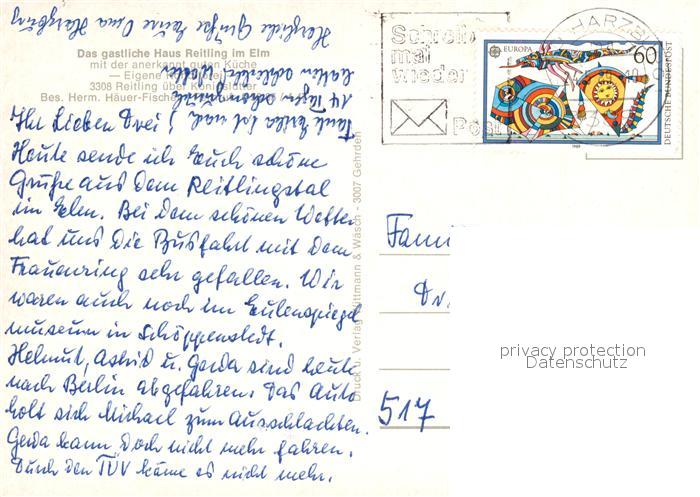 Das gastliche Haus Reitling im Elm
mit der anerkannt guten Küche
— Eigene
3308 Reitling über Königslutter
Bes. Herm. Häuer-Fisch
Ihr Lieben Drei!
Heute sende ich Euch schöne
Grüße aus dem Reitlingstal
im Elm. Bei dem schönen Wetter
hat uns die Busfahrt mit dem
Frauenring sehr gefallen. Wir
waren auch noch im Eulenspiegel
museum in Schöppenstedt.
Helmut, Astrid u. Gerda sind heute
nach Berlin abgefahren. Das Auto
holt sich Michael zum Ausschlachten.
Gerda kann doch nicht mehr fahren.
Durch den TÜV käme es nicht mehr.
Tante Erika ist nach
14 Tagen schon
Herzliche Grüße Eure Oma
Druck u. Verlag Wittmann & Wäsch - 3007 Gehrden
Schreib
mal
wieder
Post
HARZB
EUROPA
60
DEUTSCHE BUNDESPOST
1989
Fam
517
privacy protection
Datenschutz